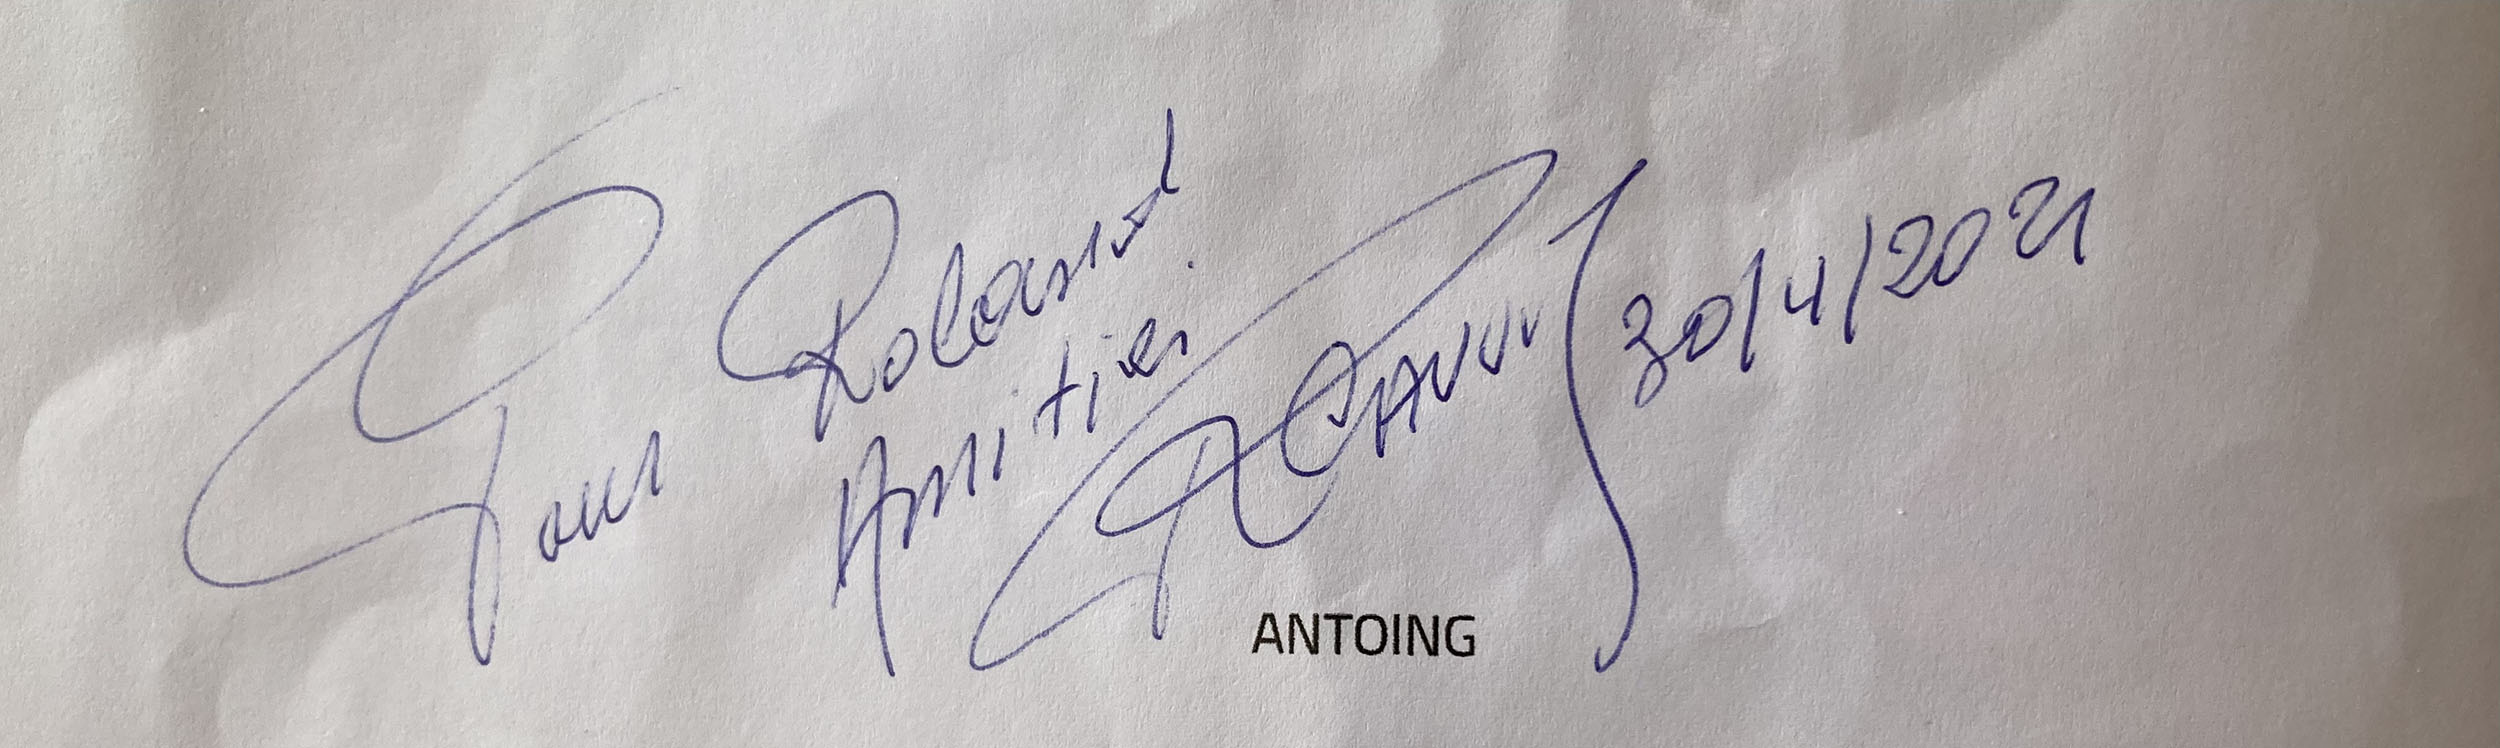 Pour Roland
Amitiés.
30/4/2021
ANTOING